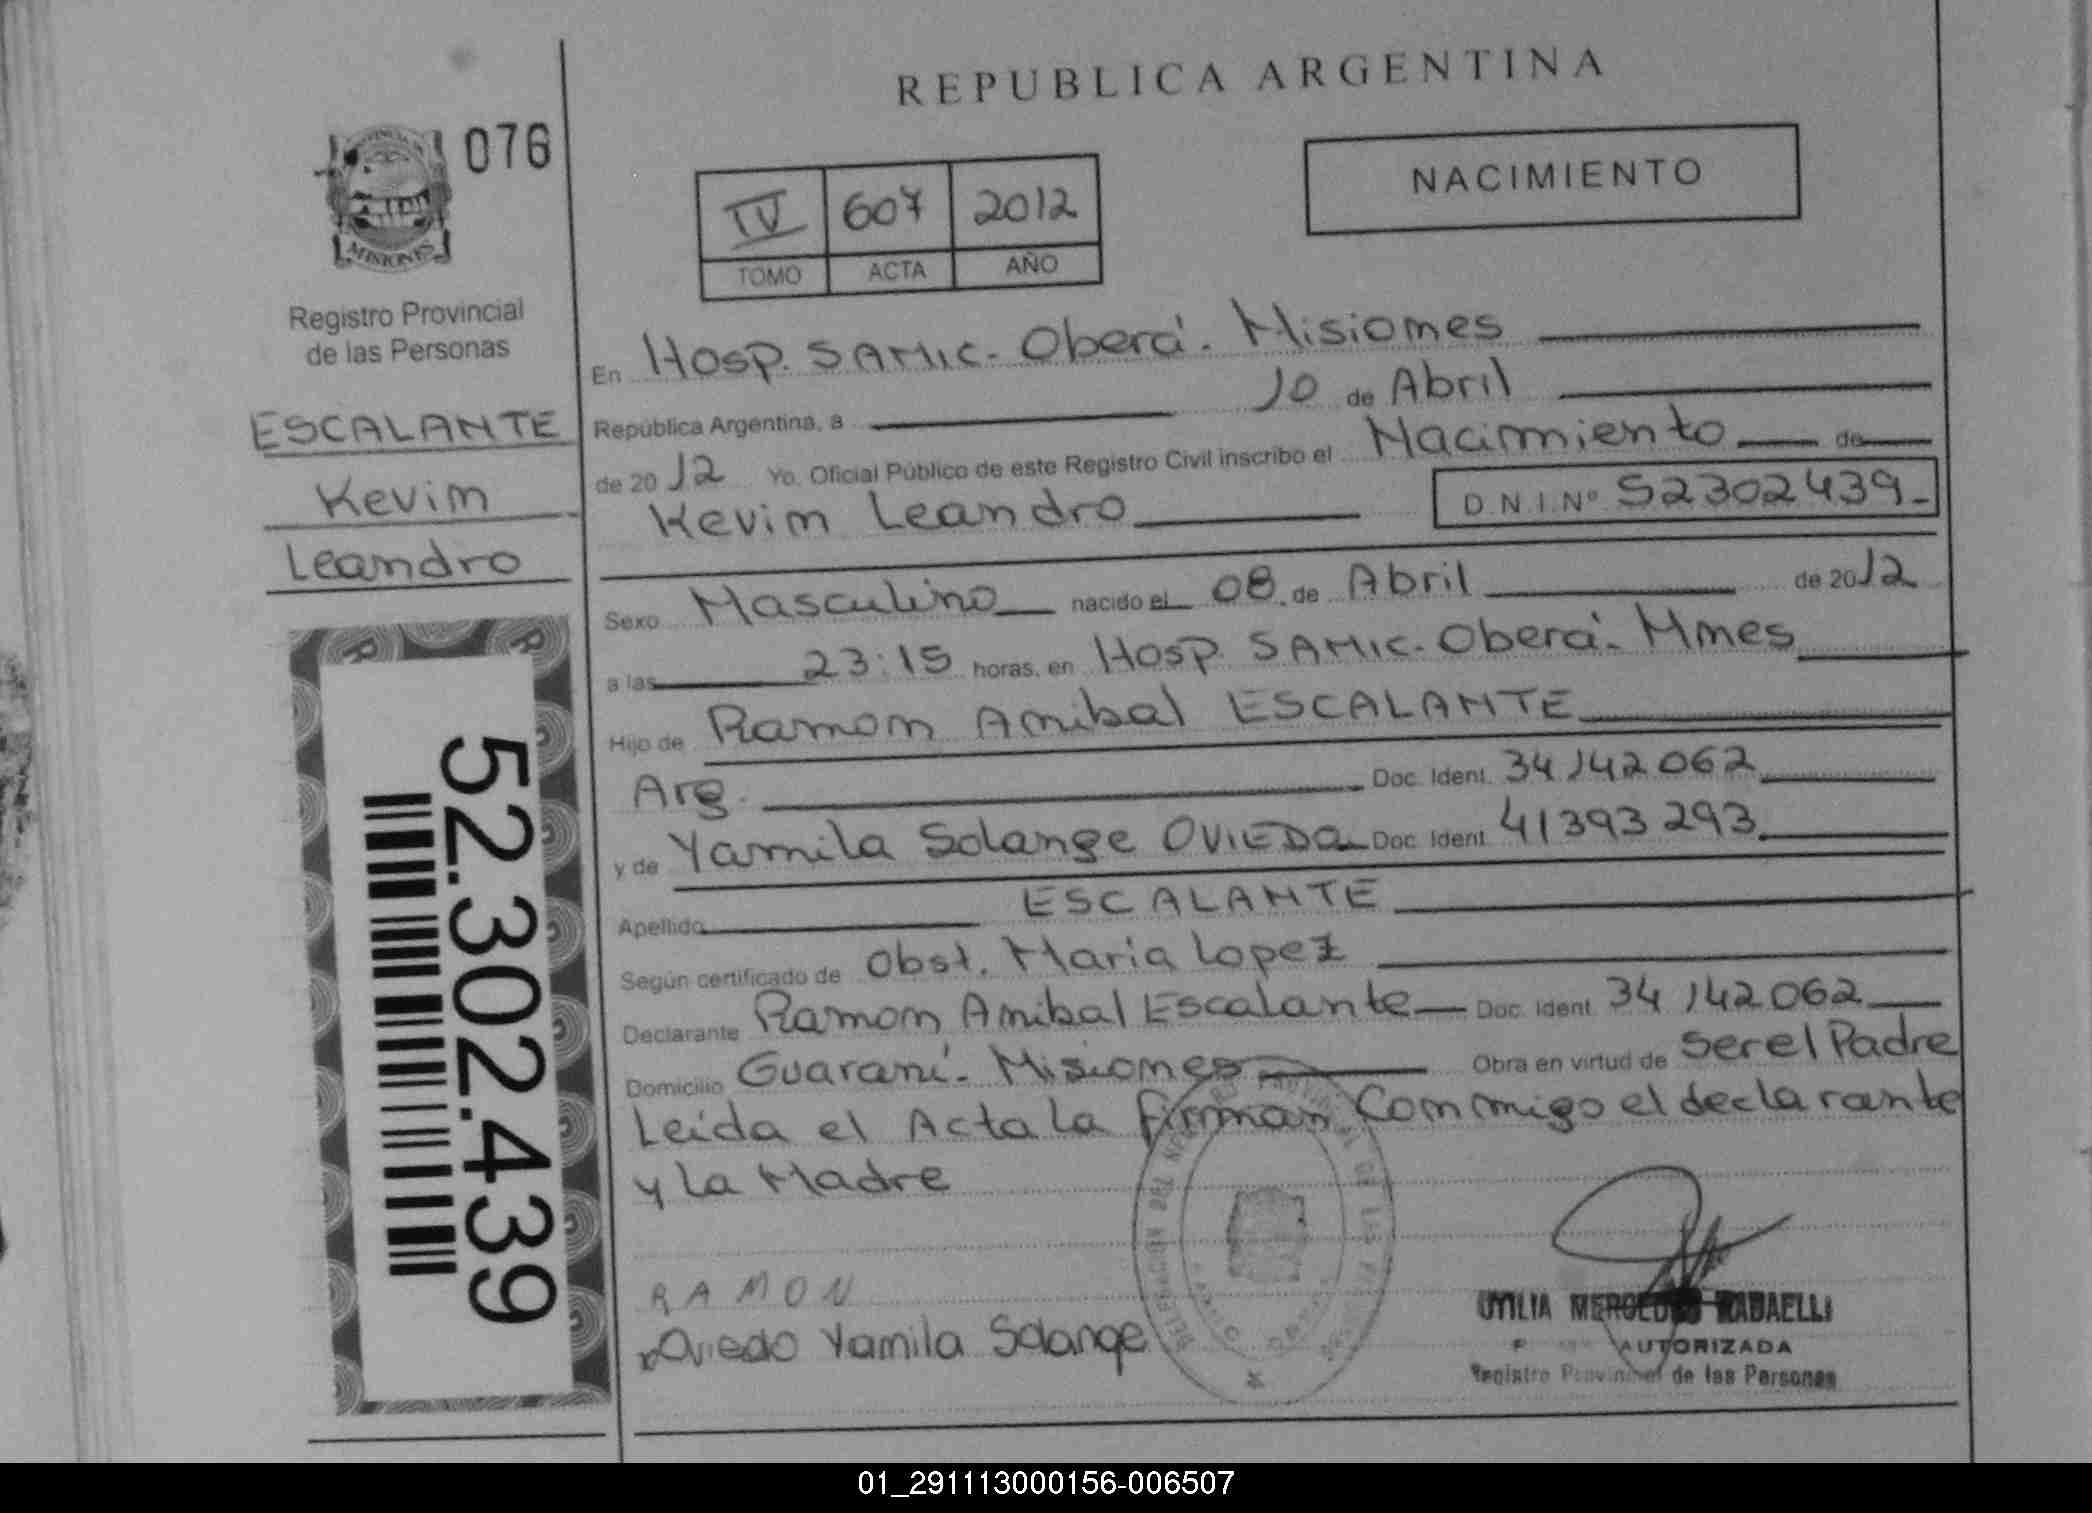 REPUBLICA ARGENTINA
076
MISIONES
Registro Provincial
de las Personas
ESCALANTE
Kevin
Leandro
52.302.439
NACIMIENTO
IV 607 2012
TOMO ACTA AÑO
En Hosp. SAMIC. Oberá. Misiones
República Argentina, a 10 de Abril
de 2012 Yo, Oficial Público de este Registro Civil inscribo el Nacimiento de
Kevin Leandro D.N.I. Nº 52302439-
Sexo Masculino nacido el 08 de Abril de 2012
a las 23:15 horas, en Hosp. SAMIC. Oberá. Mnes
Hijo de Ramon Anibal ESCALANTE
Arg. Doc. Ident. 34142062
y de Yamila Solange OVIEDO Doc. Ident. 41393293
Apellido ESCALANTE
Según certificado de Obst. Maria Lopez
Declarante Ramon Anibal Escalante Doc. Ident. 34142062
Domicilio Guaraní. Misiones Obra en virtud de Ser el Padre
Leída el Acta la firman Conmigo el declarante
y la Madre
RAMON
Oviedo Yamila Solange
AUTORIZADA
Registro Provincial de las Personas
01_291113000156-006507